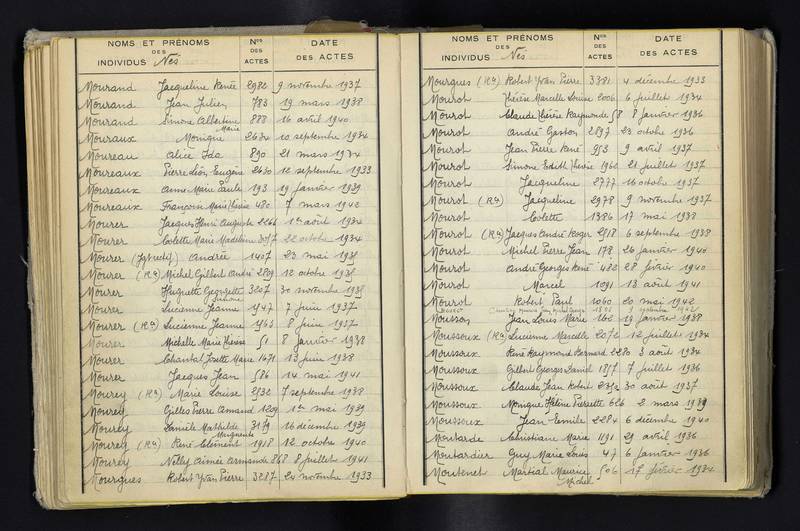 NOMS ET PRÉNOMS
DES
INDIVIDUS Nés
Nos
DES
ACTES
DATE
DES ACTES
Mourand Jacqueline Renée 2982 9 novembre 1937
Mourand Jean Julien 783 19 mars 1938
Mourand Simone Albertine 888 16 avril 1940
Marie
Mouraux Monique 2634 10 septembre 1934
Moureau Alice Ida 890 21 mars 1934
Moureaux Pierre Léon Eugène 2630 12 septembre 1933
Moureaux Anne Marie Paule 193 19 janvier 1939
Moureaux Françoise Marie Thérèse 480 7 mars 1942
Mourer Jacques Henri Auguste 2266 1er août 1934
Mourer Colette Marie Madeleine 3057 22 octobre 1934
Mourer Andrée 1407 23 mai 1935
Mourer (Ra) Michel Gilbert André 2809 12 octobre 1935
Mourer Huguette Georgette 3207 30 novembre 1935
Mourer Lucienne Jeanne 1547 7 juin 1937
Mourer (Ra) Lucienne Jeanne 1563 8 juin 1937
Mourer Michelle Marie Thérèse 51 8 janvier 1938
Mourer Chantal Josette Marie 1671 13 juin 1938
Mourer Jacques Jean 586 14 mai 1941
Mourey (Ra) Marie Louise 2532 7 septembre 1938
Mourey Gilles Pierre Armand 1209 1er mai 1939
Mourey Danièle Mathilde 3159 16 décembre 1939
Marguerite
Mourey (Ra) René Clément 1918 12 octobre 1940
Mourey Nelly Aimée Armande 868 8 juillet 1941
Mourgues Robert Yvan Pierre 3287 24 novembre 1933
NOMS ET PRÉNOMS
DES
INDIVIDUS Nés
Nos
DES
ACTES
DATE
DES ACTES
Mourgues (Ra) Robert Yvan Pierre 3381 4 décembre 1933
Mourot Thérèse Marcelle Louise 2006 6 juillet 1934
Mourot Claude Thérèse Raymonde 58 8 janvier 1936
Mourot André Gaston 2897 23 octobre 1936
Mourot Jean Pierre René 953 9 avril 1937
Mourot Simone Edith Thérèse 1960 21 juillet 1937
Mourot Jacqueline 2777 16 octobre 1937
Mourot (Ra) Jacqueline 2978 9 novembre 1937
Mourot Colette 1386 17 mai 1938
Mourot (Ra) Jacques André Roger 2518 6 septembre 1938
Mourot Michel Pierre Jean 178 26 janvier 1940
Mourot André Georges René 480 28 février 1940
Mourot Marcel 1091 13 août 1941
Mourot Robert Paul 1060 20 mai 1942
Mousson Jean Louis Marie 162 19 janvier 1938
Moussoux (Ra) Lucienne Marcelle 2072 12 juillet 1934
Moussoux René Raymond Bernard 2280 3 août 1934
Moussoux Gilbert Georges Daniel 1857 7 juillet 1936
Moussoux Claude Jean Robert 30 août 1937
Moussoux Monique Hélène Pierrette 626 2 mars 1939
Moussoux Jean Emile 2284 6 décembre 1940
Moutarde Christiane Marie 1191 29 avril 1936
Moutardier Guy Marie Louis 47 6 janvier 1936
Moutenet Martial Maurice 506 17 février 1934
Michel